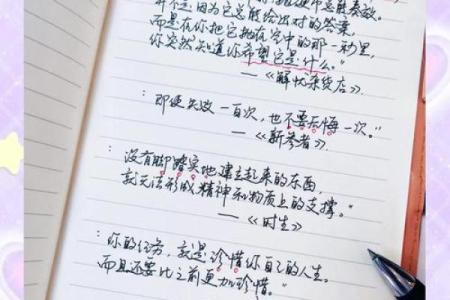 并不是因为它总能给出对的答案,
而是在你把它抛在空中的那一秒里,
你突然知道你希望它是什么。”
——《解忧杂货店》
:即使失败一百次,也不要后悔一次。”
——《新参者》
:没有脚踏实地建立起来的东西,
就无法形成精神和物质上的支撑。”
——《时生》
:你的任务,就是珍惜你自己的人生。
而且还要比之前更加珍惜。”